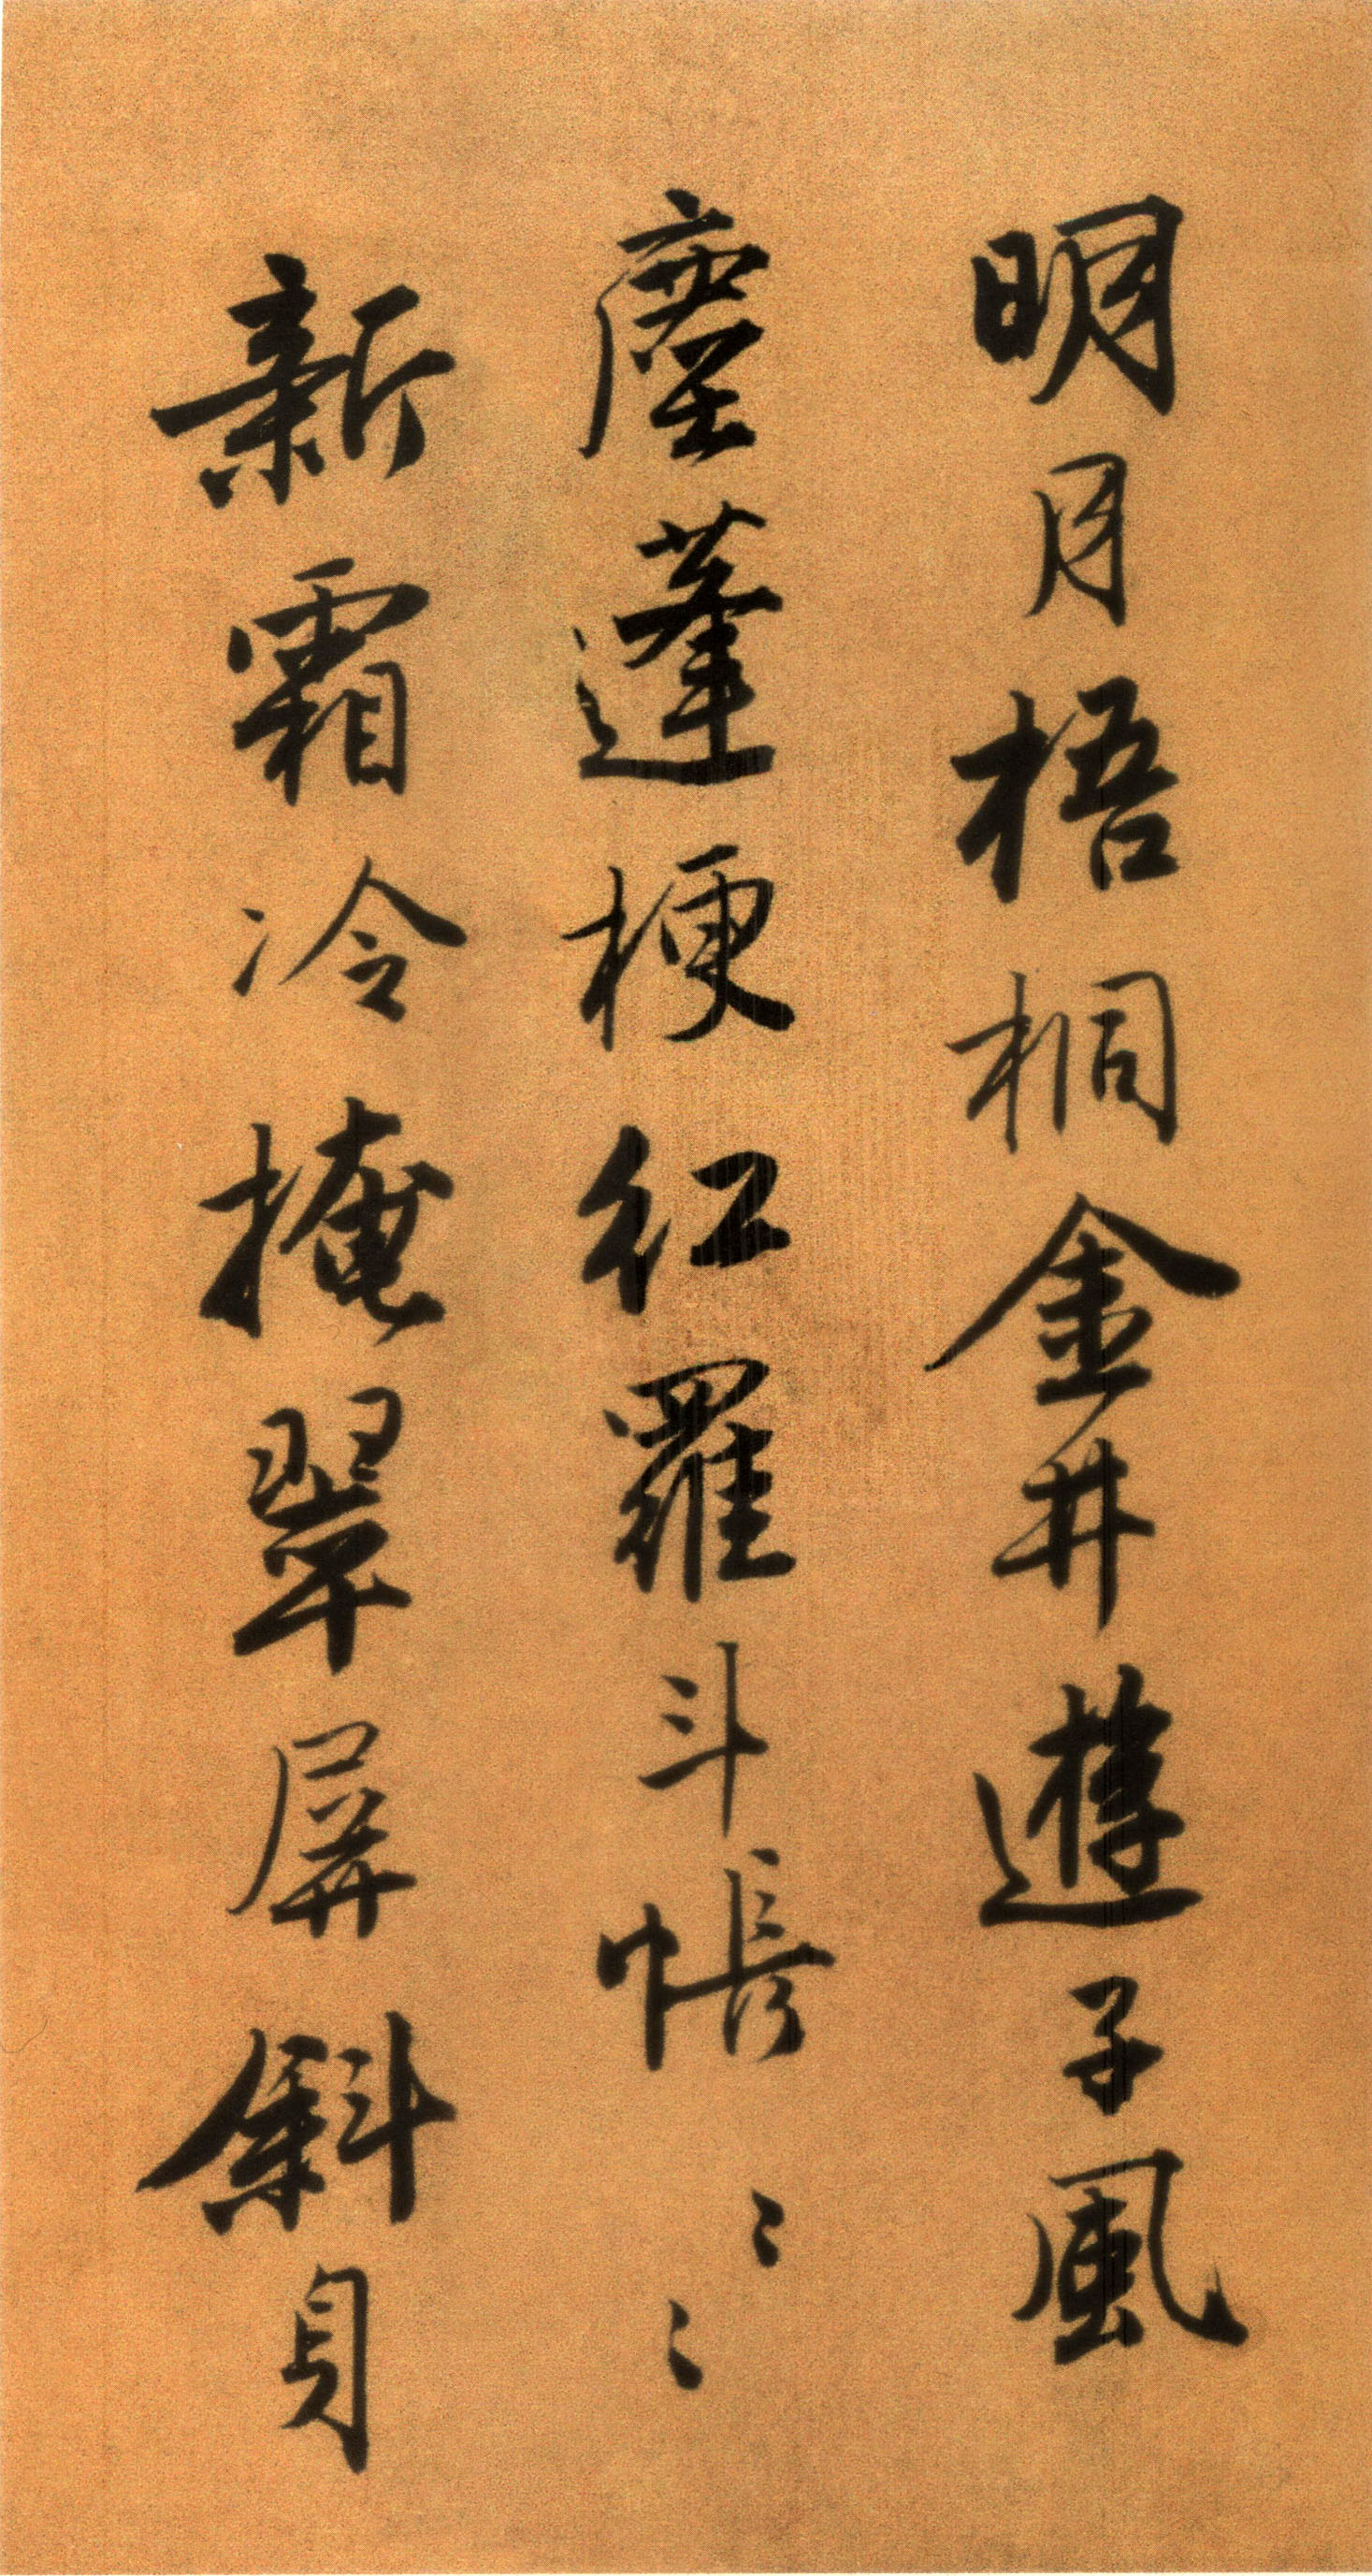 明月梧桐金井遊子風
塵蓬梗紅羅斗帳〻〻
新霜冷掩翠屏斜身